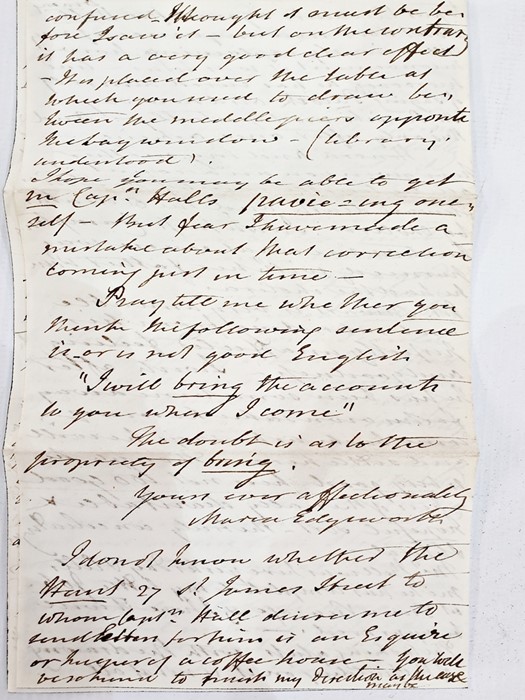 confused I thought it must be be
fore I saw it – but on the contrary
it has a very good clear effect
– It is placed over the table at
which you used to draw be,,
tween the middle piers opposite
the bay window – (library
understood).
I hope you may be able to get
in Capn. Halls pavie=ing one,,
self – But fear I have made a
mistake about that correction
coming just in time –
Pray tell me whether you
think the following sentence
is or is not good English
"I will bring the accounts
to you when I come"
The doubt is as to the
propriety of bring.
Yours ever affectionately
Maria Edgeworth
I do not know whether the
Hunt 27 St. James Street to
whom Captn. Hall desires me to
send letters for him is an Esquire
or keeper of a coffee house – You will
be so kind to finish my direction as the case
may be